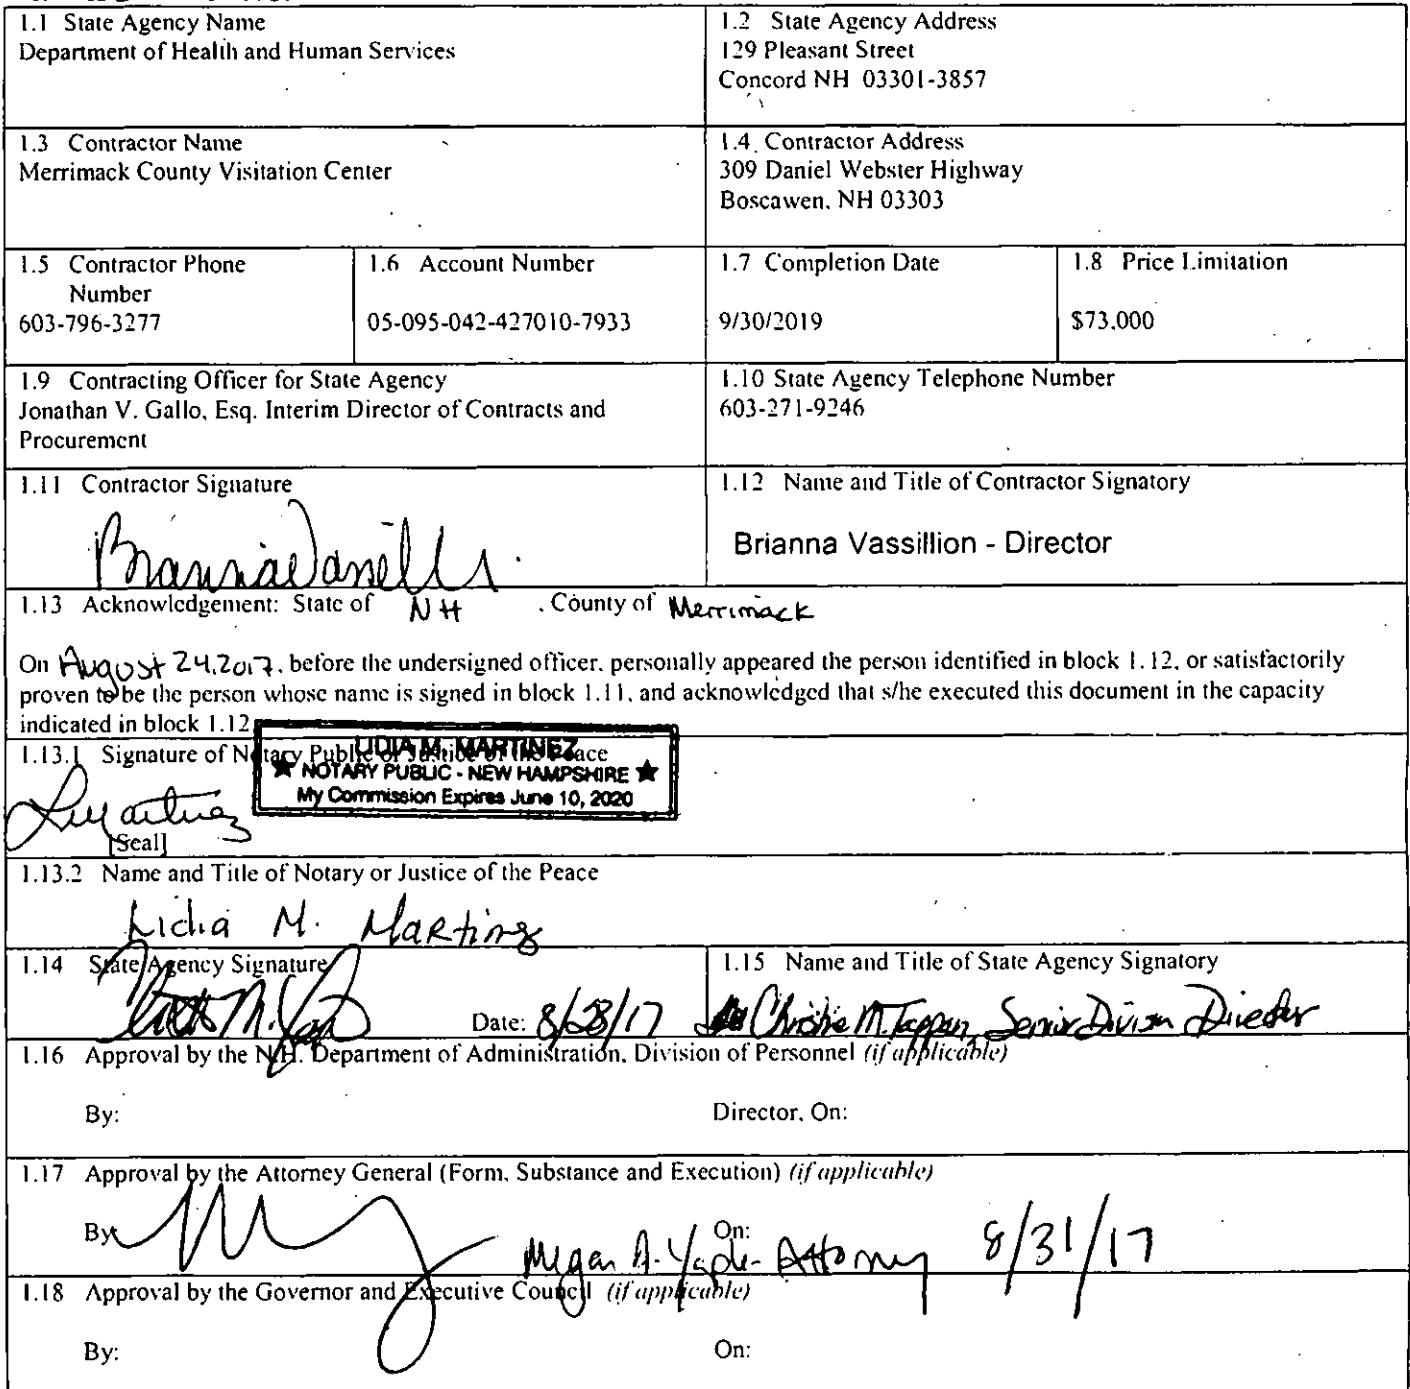 1.1 State Agency Name
Department of Health and Human Services
1.2 State Agency Address
129 Pleasant Street
Concord NH 03301-3857
1.3 Contractor Name
Merrimack County Visitation Center
1.4 Contractor Address
309 Daniel Webster Highway
Boscawen, NH 03303
1.5 Contractor Phone
Number
603-796-3277
1.6 Account Number
05-095-042-427010-7933
1.7 Completion Date
9/30/2019
1.8 Price Limitation
$73,000
1.9 Contracting Officer for State Agency
Jonathan V. Gallo, Esq. Interim Director of Contracts and
Procurement
1.10 State Agency Telephone Number
603-271-9246
1.11 Contractor Signature
1.12 Name and Title of Contractor Signatory
Brianna Vassillion - Director
1.13 Acknowledgement: State of NH , County of Merrimack
On August 24, 2017, before the undersigned officer, personally appeared the person identified in block 1.12, or satisfactorily
proven to be the person whose name is signed in block 1.11, and acknowledged that s/he executed this document in the capacity
indicated in block 1.12
1.13.1 Signature of Notary Public or Justice of the Peace
LIDIA M. MARTINEZ
★ NOTARY PUBLIC - NEW HAMPSHIRE ★
My Commission Expires June 10, 2020
LMartinez
[Seal]
1.13.2 Name and Title of Notary or Justice of the Peace
Lidia M. Martinez
1.14 State Agency Signature
Date: 8/28/17
1.15 Name and Title of State Agency Signatory
Christine M. Tappan, Senior Division Director
1.16 Approval by the N.H. Department of Administration, Division of Personnel (if applicable)
By:
Director, On:
1.17 Approval by the Attorney General (Form, Substance and Execution) (if applicable)
By:
On:
Megan A. Yaple - Attorney 8/31/17
1.18 Approval by the Governor and Executive Council (if applicable)
By:
On: